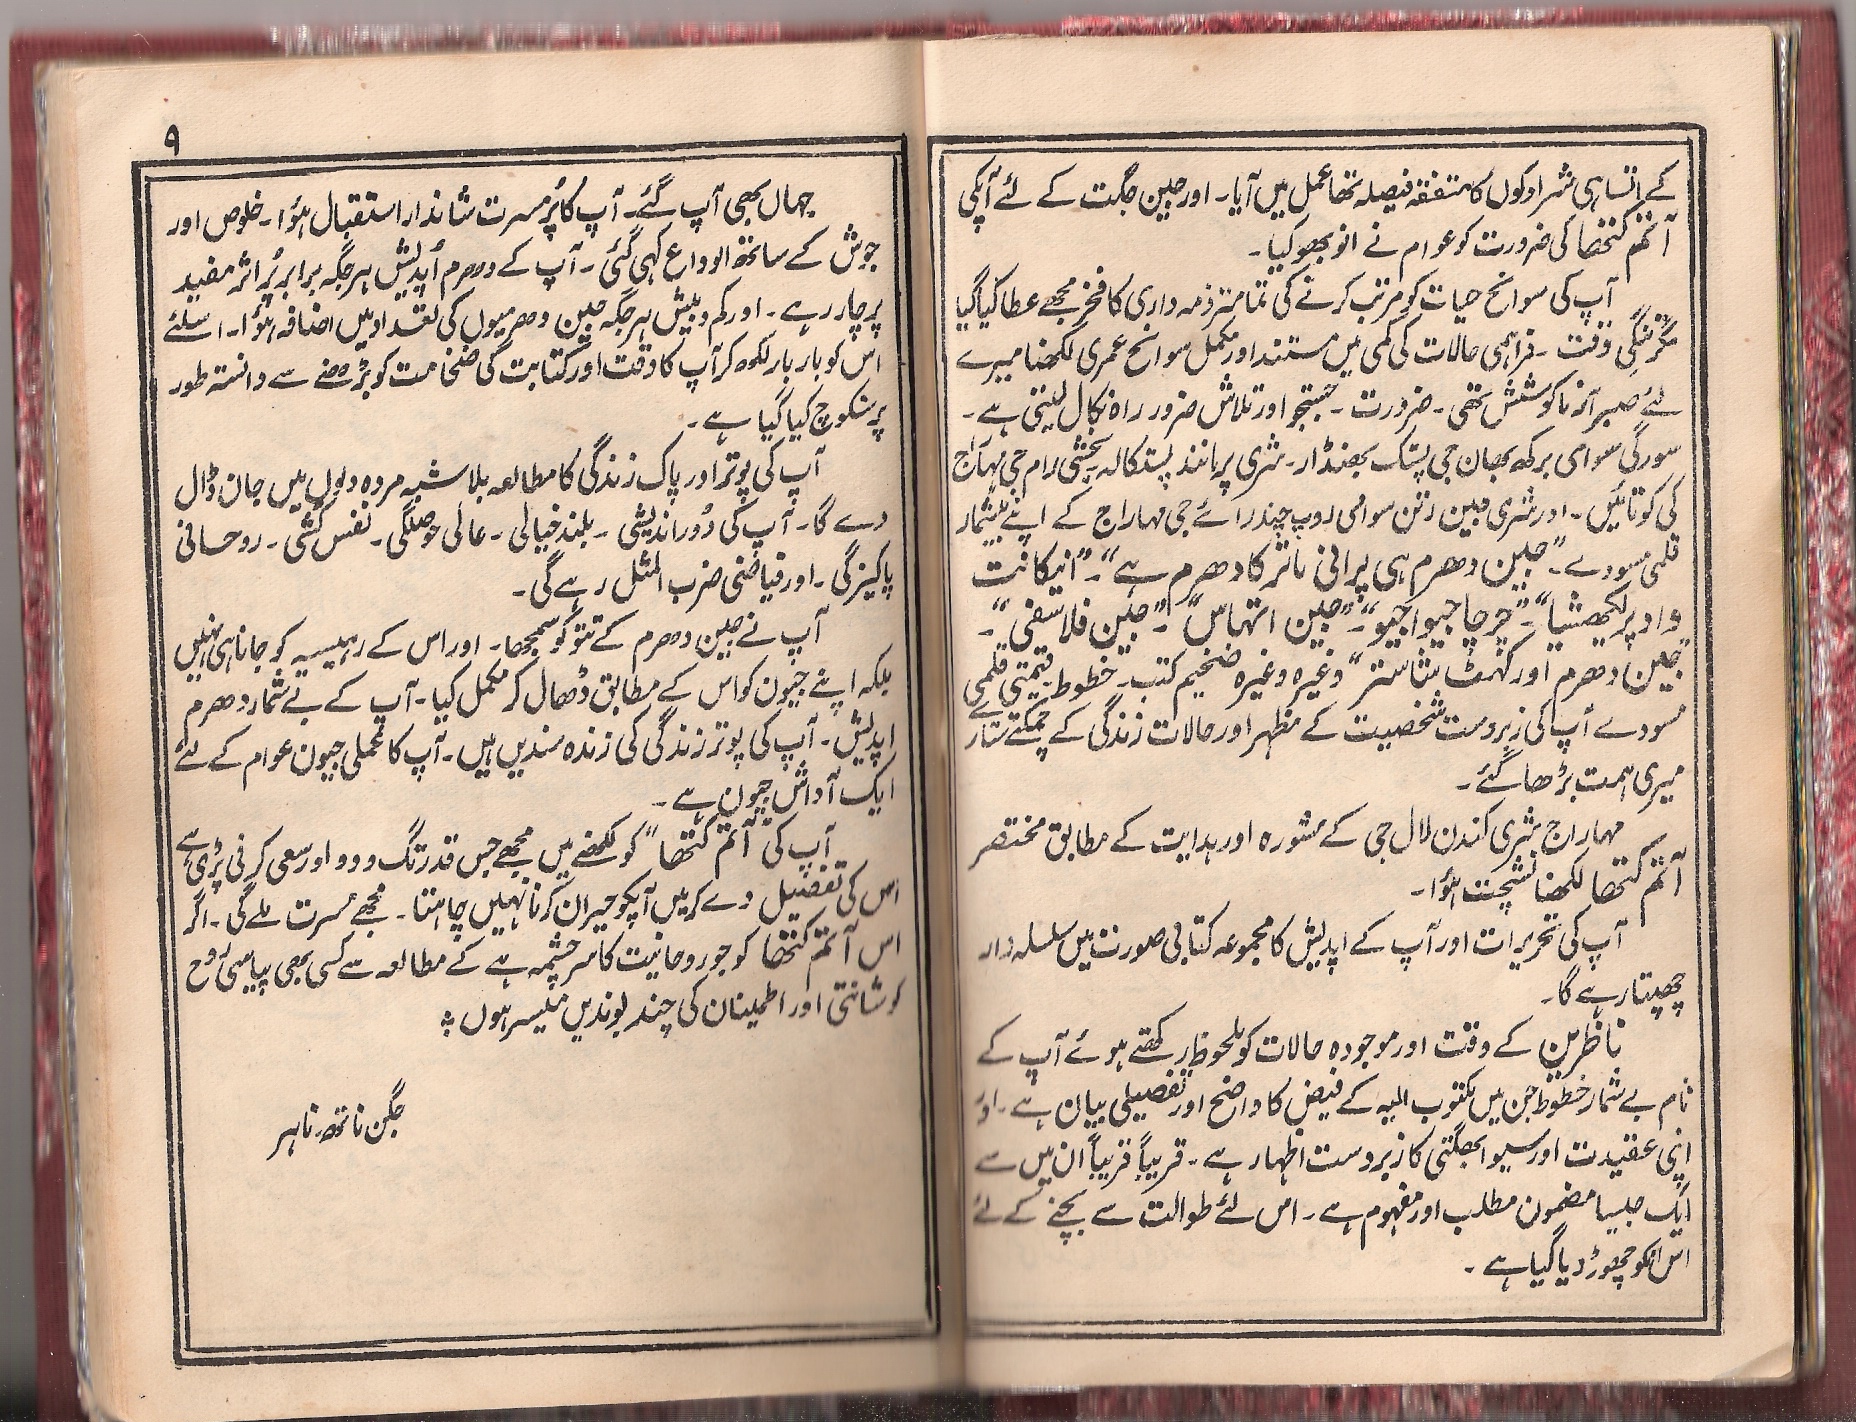 کے اتساہی شرادکوں کا متفقہ فیصلہ تھا عمل میں آیا۔ اور جین جگت کے لئے آپکی
آتم کتھا کی ضرورت کو عوام نے انوبھو کیا۔
آپ کی سوانح حیات کو مرتب کرنے کی تمامتر ذمہ داری کا فخر مجھے عطا کیا گیا
مگر تنگیٔ وقت۔ فراہمی حالات کی کمی میں مستند اور مکمل سوانح عمری لکھنا میرے
لئے صبر آزما کوشش تھی۔ ضرورت۔ جستجو اور تلاش ضرور راہ نکال لیتی ہے۔
سورگی سوامی برکھ بھان جی پستک بھنڈار۔ شری پرمانند پستکالہ۔ بخشی رام جی مہاراج
کی کوتائیں۔ اور شری جین رتن سوامی روپ چندرائے جی مہاراج کے اپنے بیشمار
قلمی مسودے۔ "جین دھرم ہی پرانی ماتر کا دھرم ہے"۔ "انیکانت
واد پر لکھشیا"۔ "چرچا جیوا جیو"۔ "جین اتہاس"۔ "جین فلاسفی"۔
"جین دھرم اور گہمٹ شاستر" وغیرہ وغیرہ ضخیم کتب۔ خطوط۔ قیمتی قلمی
مسودے آپ کی زبردست شخصیت کے مظہر اور حالات زندگی کے چمکتے ستارے
میری ہمت بڑھا گئے۔
مہاراج شری کندن لال جی کے مشورہ اور ہدایت کے مطابق مختصر
آتم کتھا لکھنا نشچت ہؤا۔
آپ کی تحریرات اور آپ کے اپدیش کا مجموعہ کتابی صورت میں سلسلہ وار
چھپتا رہے گا۔
ناظرین کے وقت اور موجودہ حالات کو ملحوظ رکھتے ہوئے آپ کے
نام بے شمار خطوط جن میں مکتوب الیہ کے فیض کا واضح اور تفصیلی بیان ہے۔ اور
اپنی عقیدت اور سیوا بھگتی کا زبردست اظہار ہے۔ قریباً قریباً ان میں سے
ایک جیسا مضمون مطلب اور مفہوم ہے۔ اس لئے طوالت سے بچنے کے لئے
اس امکو چھوڑ دیا گیا ہے۔
۹
جہاں بھی آپ گئے۔ آپ کا پُر مسرت شاندار استقبال ہؤا۔ خلوص اور
جوش کے ساتھ الوداع کہی گئی۔ آپ کے دھرم اُپدیش ہر جگہ برابر پُر اثر مفید
پرچار رہے۔ اور کم و بیش ہر جگہ جین دھرمیوں کی تعداد میں اضافہ ہؤا۔ اسلئے
اس کو بار بار لکھ کر آپ کا وقت اور کتابت کی ضخامت کو بڑھنے سے دانستہ طور
پر سنکوچ کیا گیا ہے۔
آپ کی پوتر اور پاک زندگی کا مطالعہ بلاشبہ مردہ دلوں میں جان ڈال
دے گا۔ آپ کی دُور اندیشی۔ بلند خیالی۔ عالی حوصلگی۔ نفس کُشی۔ روحانی
پاکیزگی۔ اور فیاضی ضرب المثل رہے گی۔
آپ نے جین دھرم کے تتو کو سمجھا۔ اور اس کے رہسیہ کو جانا ہی نہیں
بلکہ اپنے جیون کو اس کے مطابق ڈھال کر مکمل کیا۔ آپ کے بے شمار دھرم
اپدیش۔ آپ کی پوتر زندگی کی زندہ سندیں ہیں۔ آپ کا عملی جیون عوام کے لئے
ایک آداش جیون ہے۔
آپ کی "آتم کتھا" کو لکھنے میں مجھے جس قدر تگ و دو اور سعی کرنی پڑی ہے
اس کی تفصیل دے کر میں آپکو حیران کرنا نہیں چاہتا۔ مجھے مسرت ملے گی۔ اگر
اس آتم کتھا کو جو روحانیت کا سرچشمہ ہے کے مطالعہ سے کسی بھی پیاسی رُوح
کو شانتی اور اطمینان کی چند بوندیں میسر ہوں ؞
جگن ناتھ۔ ناہر